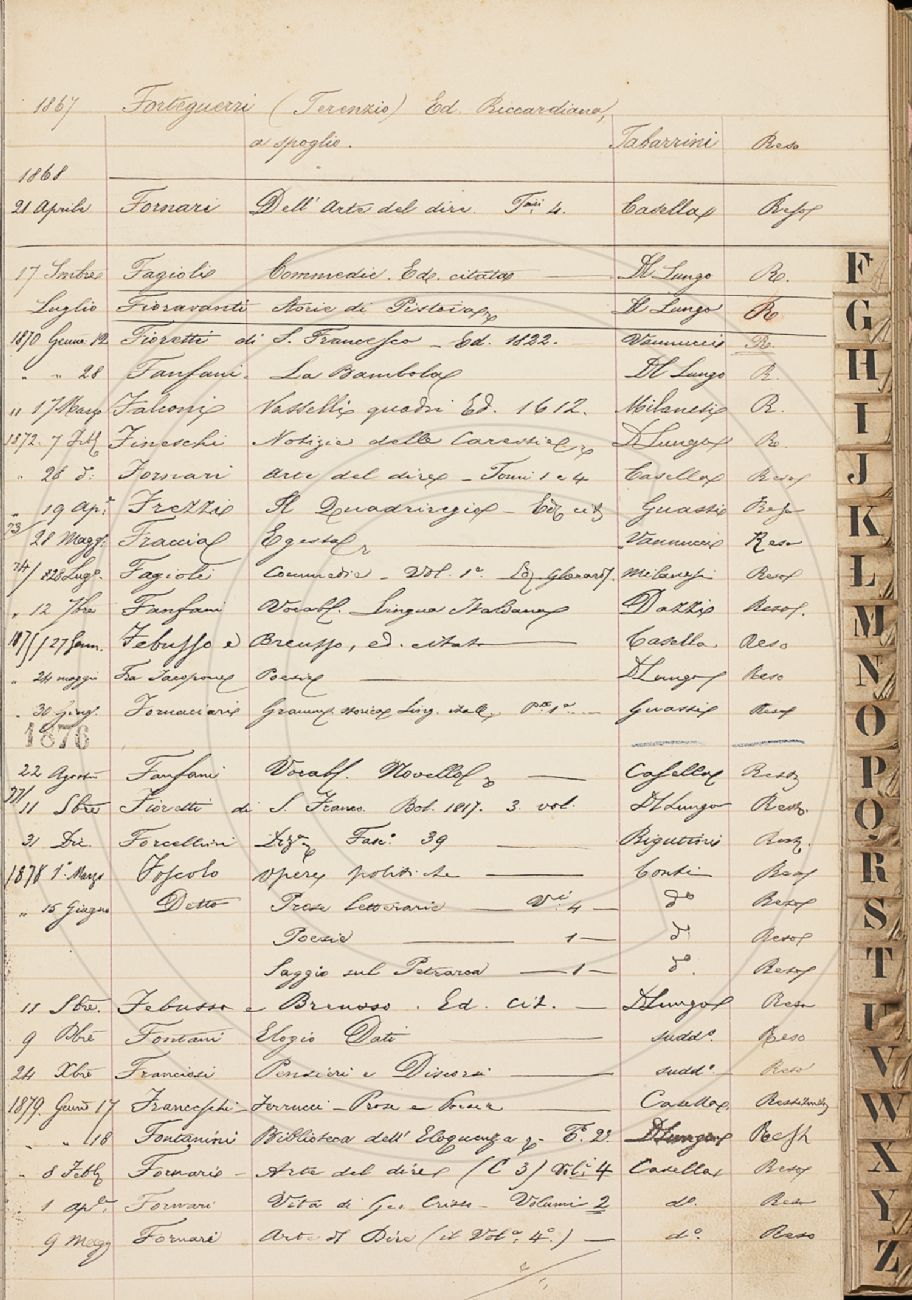 1867 Forteguerri (Terenzio) Ed. Riccardiana,
a spoglio. Tabarrini Reso
1868
21 Aprile Fornari Dell' Arte del dire. Tomi 4. Casella Reso
17 Fagioli Commedie. Ediz. citata Del Lungo R.
Luglio Fioravanti Storie di Pistoia Del Lungo R
1870 Genn. 12 Fioretti di S. Francesco - Ed. 1822. Vannucci R.
" " 28 Fanfani. La Bambola Del Lungo R.
" 17 Marzo Falconi Vasselli quadri Ed. 1612. Milanesi R.
1872. 7 Febb. Fineschi Notizie delle Carestie Del Lungo R
" 26 d.o Fornari Arte del dire - Tomi 1 e 4 Casella Reso
" 19 Ap.e Frezzi Il Quadriregio - Ediz. cit. Guasti Reso
73/ 28 Magg. Fraccia Egesta Vannucci Reso
74/ Lugl. Fagioli Commedie - Vol. 1o. Milanesi Reso
" 12 7bre Fanfani Vocab. Lingua Italiana Dazzi Reso.
1875/ 27 Genn. Febusso e Breusso, ed. citata Casella Reso
" 24 maggio Fra Jacopone Poesie D Lungo Reso
" 30 Giug. Fornaciari Gramm. storica Ling. ital. P.te 1a Guasti Reso
1876
22 Agosto Fanfani Vocab. Novello Casella Resto
77/ 11 Fioretti di S. Franc. Bol. 1817. 3 vol. Del Lungo Resto
31 Dic. Forcellini Diz. Fasc. 39 Rigutini Resto
1878 1o Marzo Foscolo Opere politiche Conti Reso
" 15 Giugno Detto Prose letterarie Vi 4 do Reso
Poesie 1 do Reso
Saggio sul Petrarca 1 do. Reso
11 Febusso e Breusso. Ed. cit. D Lungo Reso
9 Fontani Elogio Dati sudd.o Reso
24 Xbre Franciosi Pensieri e Discorsi sudd.o Reso
1879. Genn. 17 Franceschi-Ferrucci - Prose e Poesie Casella
" " 18 Fontanini Biblioteca dell' Eloquenza T. 2o. D Lungo
" 8 Febb. Fornari - Arte del dire (C 3) Vol. 4 Casella Reso
" 1 ap.le Fornari Vita di Ges. Cristo - Volumi 2 do. Reso
9 Magg Fornari Arte d Dire (il Vol.o 4o.) do. Reso
F
G
H
I
J
K
L
M
N
O
P
Q
R
S
T
U
V
W
X
Y
Z